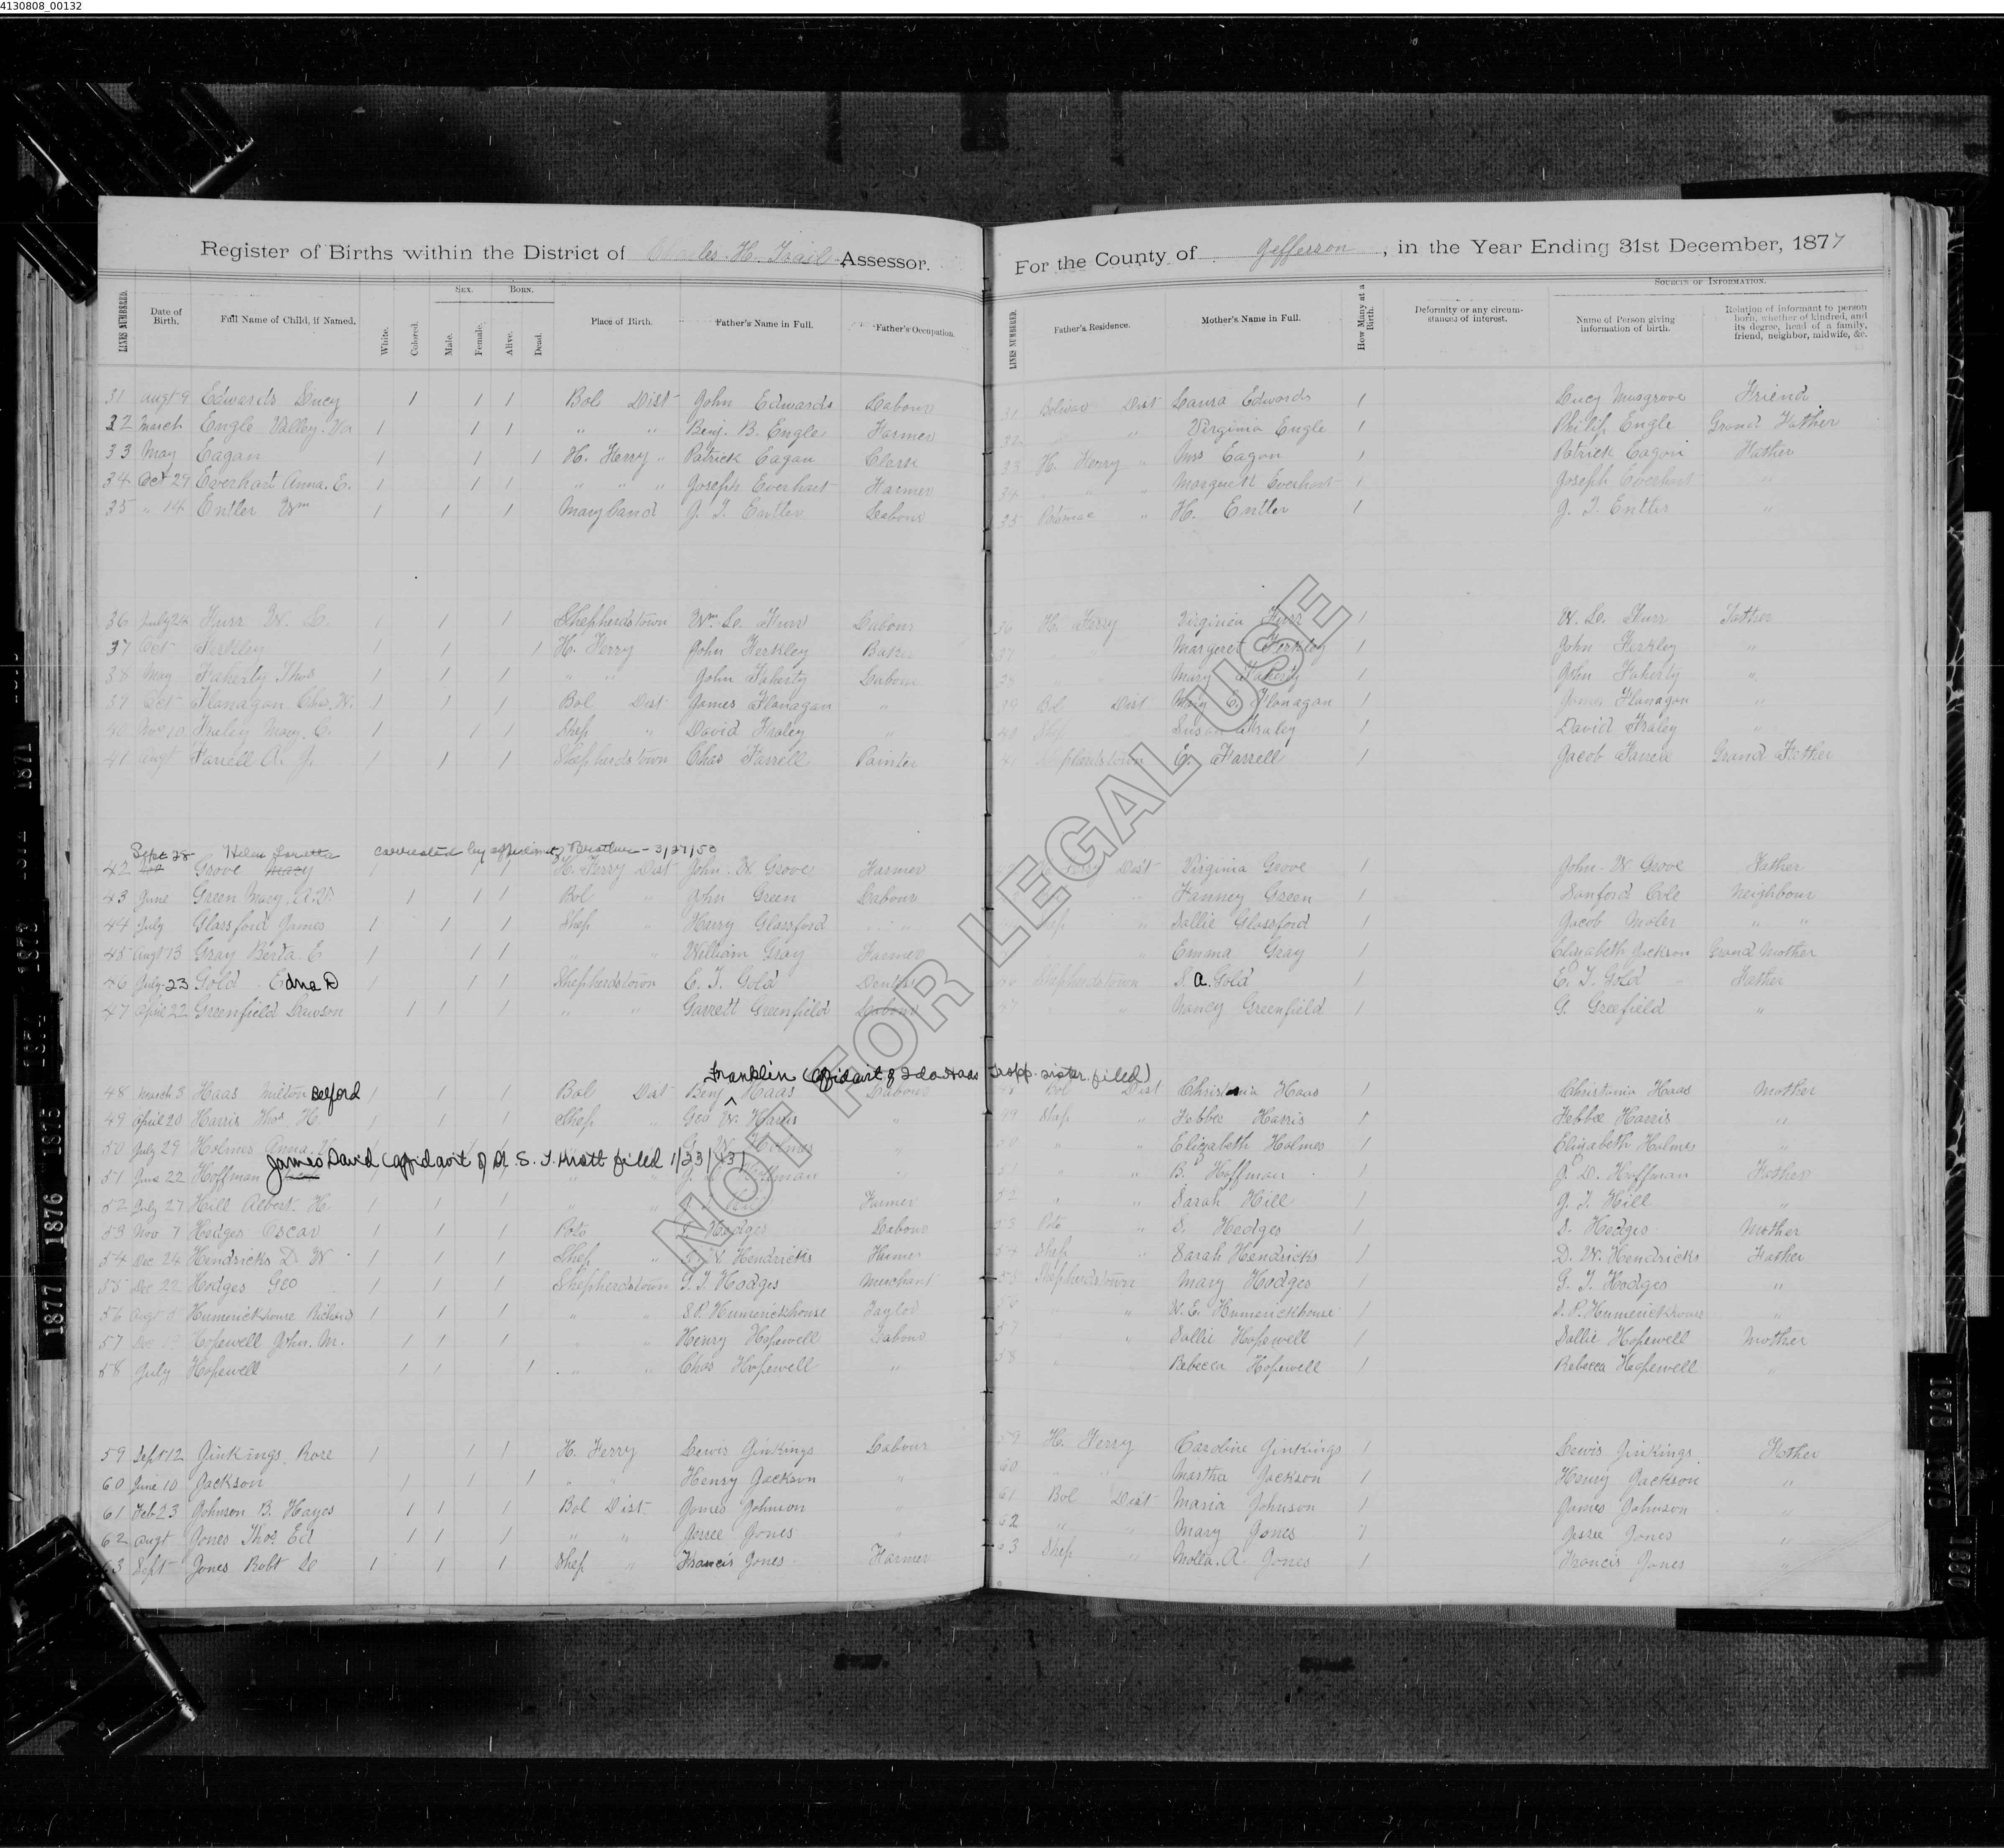 4130808_00132
Register of Births within the District of Charles. H. Trail Assessor. For the County of Jefferson, in the Year Ending 31st December, 1877
LINES NUMBERED. Date of Birth. Full Name of Child, if Named. White. Colored. SEX. Male. Female. BORN. Alive. Dead. Place of Birth. Father's Name in Full. Father's Occupation. LINES NUMBERED. Father's Residence. Mother's Name in Full. How Many at a Birth. Deformity or any circumstances of interest. SOURCES OF INFORMATION. Name of Person giving information of birth. Relation of informant to person born, whether of kindred, and its degree, head of a family, friend, neighbor, midwife, &c.
31 Augt 9 Edwards Lucy 1 1 1 Bol Dist John Edwards Labour 31 Bolivar Dist Laura Edwards 1 Lucy Musgrove Friend
32 March Engle Valley. Va 1 1 1 " " Benj. B. Engle Farmer 32 " " Virginia Engle 1 Philip Engle Grand Father
33 May Eagan 1 1 1 H. Ferry " Patrick Eagan Clark 33 H. Ferry " Mrs Eagon 1 Patrick Eagon Father
34 Oct 29 Everhart Anna. E. 1 1 1 " " " Joseph Everhart Farmer 34 " " Margarett Everhart 1 Joseph Everhart "
35 " 14 Entler Wm 1 1 1 Maryland J. T. Entler Labour 35 Potomac " H. Entler 1 J. T. Entler "
36 July 24 Furr W. L. 1 1 1 Shepherdstown Wm. L. Furr Labour 36 H. Ferry Virginia Furr 1 W. L. Furr Father
37 Oct Ferkley 1 1 1 H. Ferry John Ferkley Baker 37 " Margeret Ferkley 1 John Ferkley "
38 May Faherty Thos 1 1 1 " " John Faherty Labour 38 " " Mary Faherty 1 John Faherty "
39 Oct Flanagan Chas. W. 1 1 1 Bol Dist James Flanagan " 39 Bol Dist Mary C. Flonagan 1 James Flanagan "
40 Nov 10 Fraley Mary. C. 1 1 1 Shep " David Fraley " 40 Shep Susan Fraley 1 David Fraley "
41 Augt Farrell A. J. 1 1 1 Shepherdstown Chas Farrell Painter 41 Shepherdstown E. Farrell 1 Jacob Farrell Grand Father
Sept 28 Helen Loretta corrected by affidavit of Brother - 3/27/50
42 Grove Mary 1 1 1 H. Ferry Dist John. W Grove Farmer H. Ferry Dist Virginia Grove 1 John. W Grove Father
43 June Green Mary. A.V. 1 1 1 Bol " John Green Labour " " Fanney Green 1 Sanford Cole Neighbour
44 July Glassford James 1 1 1 Shep " Harry Glassford " Shep " Sallie Glassford 1 Jacob Moler " "
45 Augt 13 Gray Berta. E 1 1 1 " " William Gray Farmer " " Emma Gray 1 Elizabeth Jackson Grand Mother
46 July 23 Gold Edna D 1 1 1 Shepherdstown E. T. Gold Dentist 46 Shepherdstown S. A. Gold 1 E. T. Gold Father
47 April 22 Greenfield Dawson 1 1 1 " " Garrett Greenfield Labour 47 " " Nancy Greenfield 1 G. Greefield "
Franklin (Affidavit of Ida Haas Tropp. sister. filed)
48 March 3 Haas Milton Belford 1 1 1 Bol Dist Benj ^ Haas Labour 48 Bol Dist Christania Haas 1 Christania Haas Mother
49 April 20 Harris Thos. H. 1 1 1 Shep " Geo W. Harris " 49 Shep " Febbee Harris 1 Febbee Harris "
50 July 29 Holmes Anna. V. 1 1 1 " " G. W. Holmes " 50 " " Elizabeth Holmes 1 Elizabeth Holmes "
James David (affidavit of Dr. S. T. Knott filed 1/23/43)
51 June 22 Hoffman 1 1 1 " " J. D. Hoffman " 51 " " B. Hoffman 1 J. D. Hoffman Father
52 July 27 Hill Albert. H. 1 1 1 " " J. T. Hill Farmer 52 " " Sarah Hill 1 J. T. Hill "
53 Nov 7 Hedges Oscar 1 1 1 Poto " Hedges Labour 53 Poto " S. Hedges 1 S. Hedges Mother
54 Dec 24 Hendricks D W 1 1 1 Shep " D. W. Hendricks Farmer 54 Shep " Sarah Hendricks 1 D. W. Hendricks Father
55 Dec 22 Hodges Geo 1 1 1 Shepherdstown G. T. Hodges Merchant 55 Shepherdstown Mary Hodges 1 G. T. Hodges "
56 Augt 8 Humerickhouse Richard 1 1 1 " " S. P. Humerickhouse Taylor 56 " " N. E. Humerickhouse 1 S. P. Humerickhouse "
57 Dec Hopewell John. M. 1 1 1 " " Henry Hopewell Labour 57 " " Sallie Hopewell 1 Sallie Hopewell Mother
58 July Hopewell 1 1 1 " " Chas Hopewell " 58 " Rebecca Hopewell 1 Rebecca Hopewell "
59 Sept 12 Jinkings. Rose 1 1 1 H. Ferry Lewis Jinkings Labour 59 H. Ferry Caroline Jinkings 1 Lewis Jinkings Father
60 June 10 Jackson 1 1 1 " " Henry Jackson " 60 " " Martha Jackson 1 Henry Jackson "
61 Feb 23 Johnson B. Hayes 1 1 1 Bol Dist. James Johnson 61 Bol Dist Maria Johnson 1 James Johnson "
62 Augt Jones Thos. Ed 1 1 1 " " Jessee Jones " 62 " " Mary Jones 1 Jessee Jones "
63 Sept Jones Robt Le 1 1 1 Shep " Francis Jones Farmer 63 Shep " Molla. A Jones 1 Francis Jones "
NOT FOR LEGAL USE
1871
1873
1875
1876
1877
1878
1879
1880